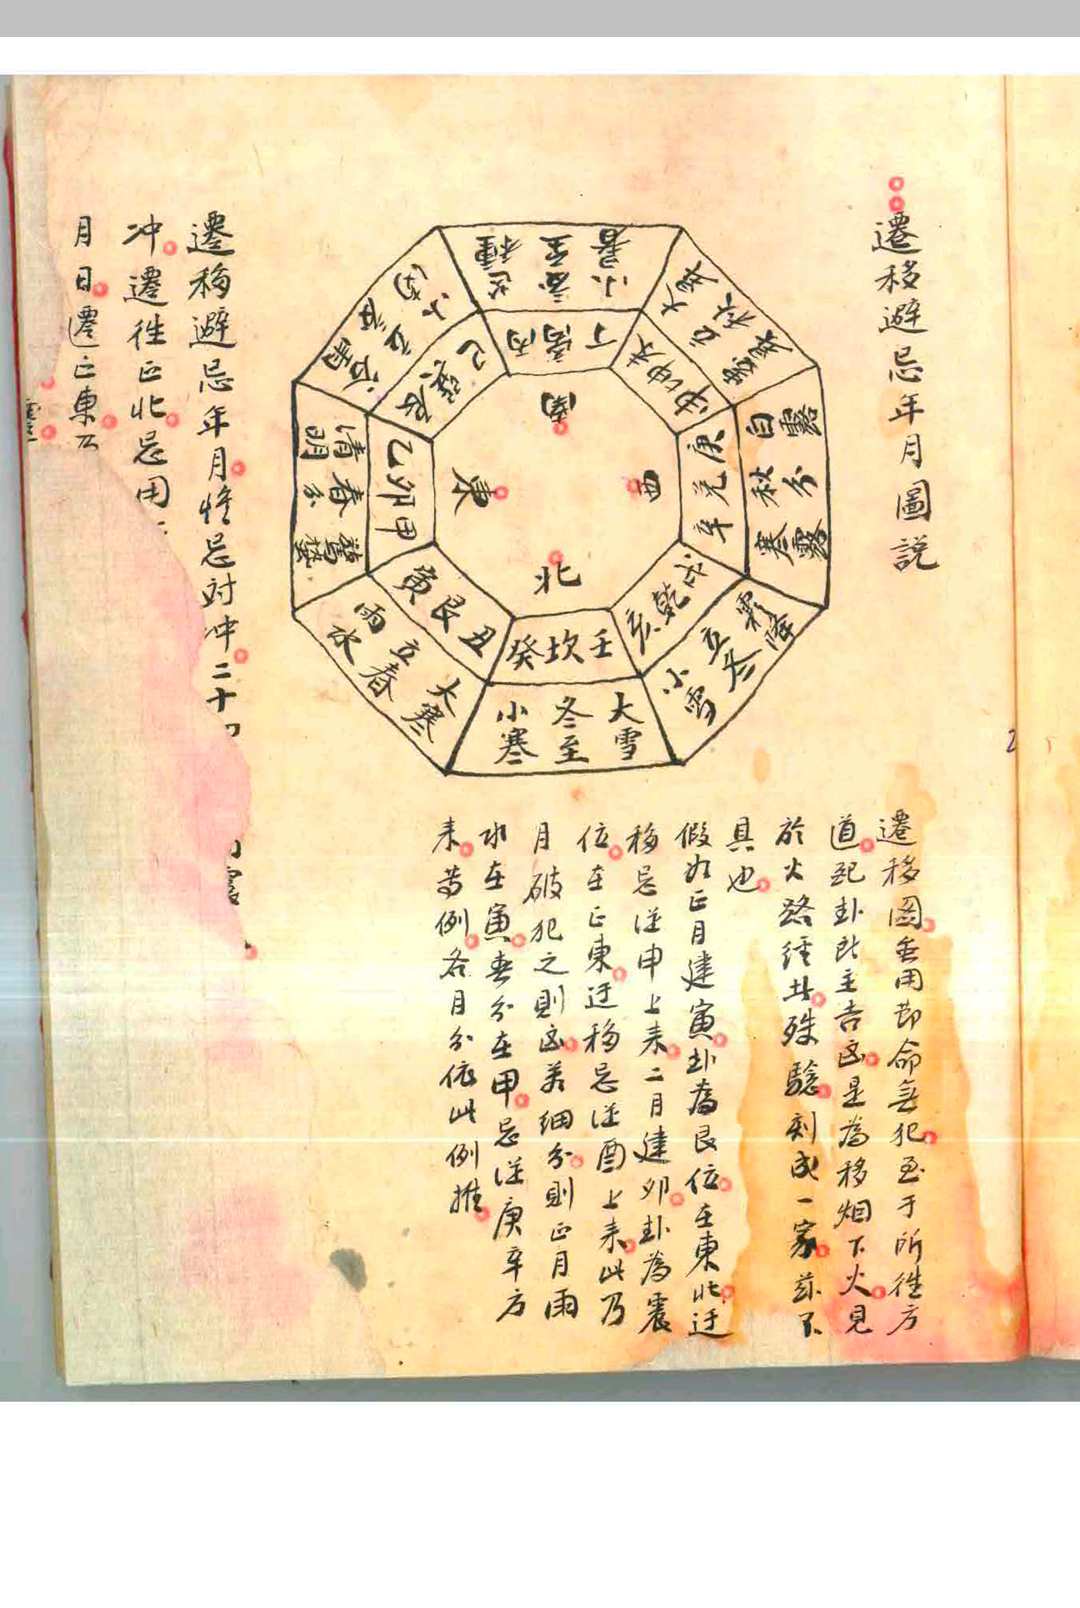 遷移避忌年月圖說
小暑
夏至
芒種
丁
丙
南
西
東
北
庚
兌
辛
白露
秋分
寒露
戌
乾
亥
霜降
立冬
小雪
壬
坎
癸
大雪
冬至
小寒
丑
艮
寅
大寒
立春
雨水
甲
卯
乙
驚蟄
春分
清明
巽
巳
遷移圖
用即命無犯至于所徃方
道
卦
主吉凶是為移烟下火見
於火路經
殊驗刻成一家茲不
具也
假如正月建寅卦為艮位在東北迂
移忌從申上来二月建卯卦為震
位在正東迂移忌從酉上来此乃
月破犯之則凶若細分則正月雨
水在寅春分在甲忌從庚辛方
来
例各月分依此例推
遷移避忌年月
忌対冲二十
冲遷徃正北忌用
月日遷正東